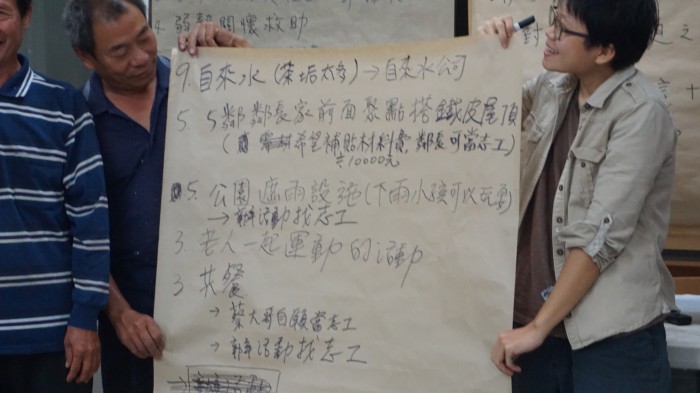 4. 弱勢關懷救助
對
之
9. 自來水(茶垢太多)→自來水公司
5. 5鄰鄰長家前面聚點搭鐵皮屋頂
(希望補貼材料費,鄰長可當志工)
10000元
5. 公園遮雨設施(下雨小孩可以玩耍)
→辦活動找志工
3 老人一起運動的活動
3 共餐
→蔡大哥自願當志工
→辦活動找志工